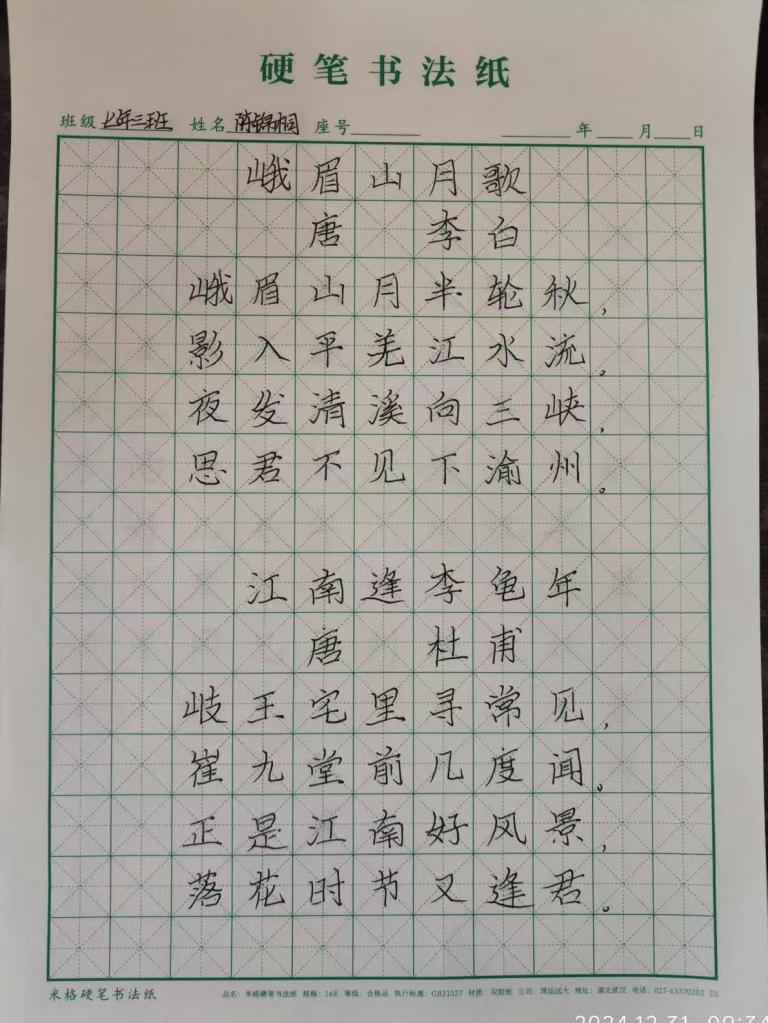 硬笔书法纸
班级 七年三班 姓名 陈锦桐 座号 年 月 日
峨眉山月歌
唐 李白
峨眉山月半轮秋，
影入平羌江水流。
夜发清溪向三峡，
思君不见下渝州。
江南逢李龟年
唐 杜甫
岐王宅里寻常见，
崔九堂前几度闻。
正是江南好风景，
落花时节又逢君。
米格硬笔书法纸 品名：米格硬笔书法纸 规格：16K 等级：合格品 执行标准：GB21027 材质：双胶纸 公司：鸿运远大 地址：湖北武汉 电话：027-63370203
2024.12.31 09:34